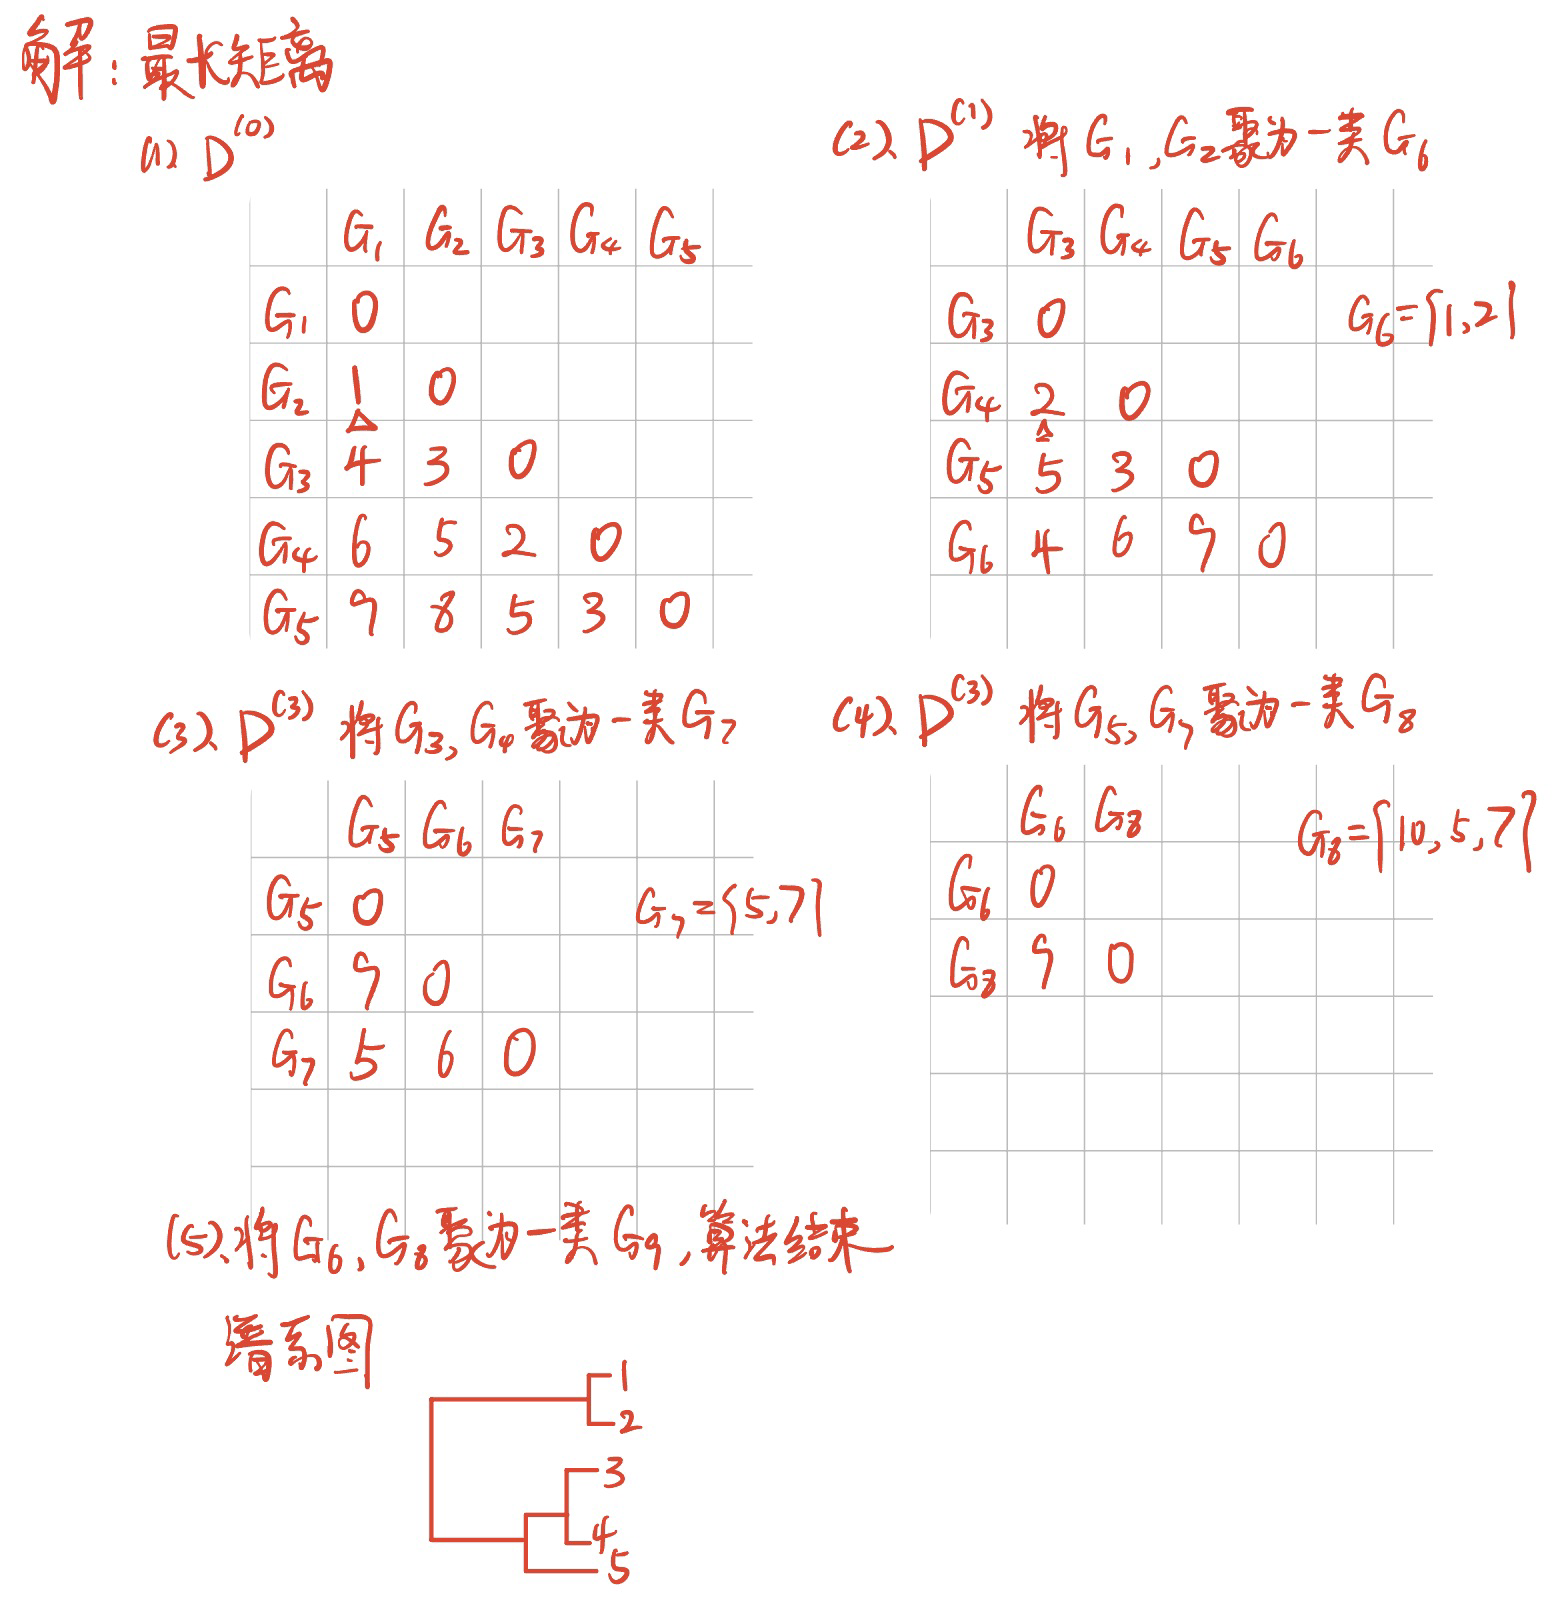 解：最长距离
(1) D⁽⁰⁾
G₁ G₂ G₃ G₄ G₅
G₁ 0
G₂ 1 0
G₃ 4 3 0
G₄ 6 5 2 0
G₅ 9 8 5 3 0
(2)、D⁽¹⁾ 将G₁,G₂聚为一类G₆
G₃ G₄ G₅ G₆
G₃ 0
G₆={1,2}
G₄ 2 0
G₅ 5 3 0
G₆ 4 6 9 0
(3)、D⁽³⁾ 将G₃,G₄聚为一类G₇
G₅ G₆ G₇
G₅ 0
G₇={5,7}
G₆ 9 0
G₇ 5 6 0
(4)、D⁽³⁾ 将G₅,G₇聚为一类G₈
G₆ G₈
G₈={10,5,7}
G₆ 0
G₈ 9 0
(5)、将G₆,G₈聚为一类G₉,算法结束
谱系图
1
2
3
4
5